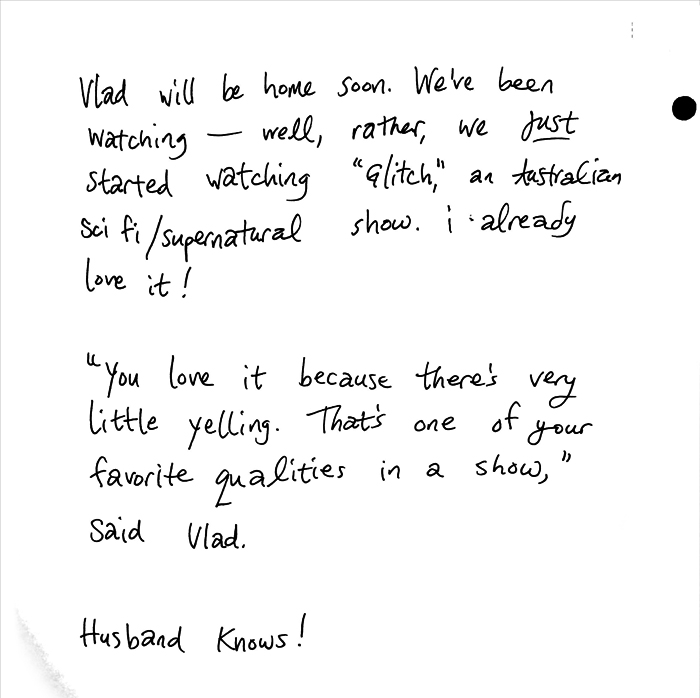 Vlad will be home soon. We've been
watching — well, rather, we just
started watching "Glitch," an Australian
sci fi/supernatural show. i already
love it!
"You love it because there's very
little yelling. That's one of your
favorite qualities in a show,"
Said Vlad.
Husband Knows!